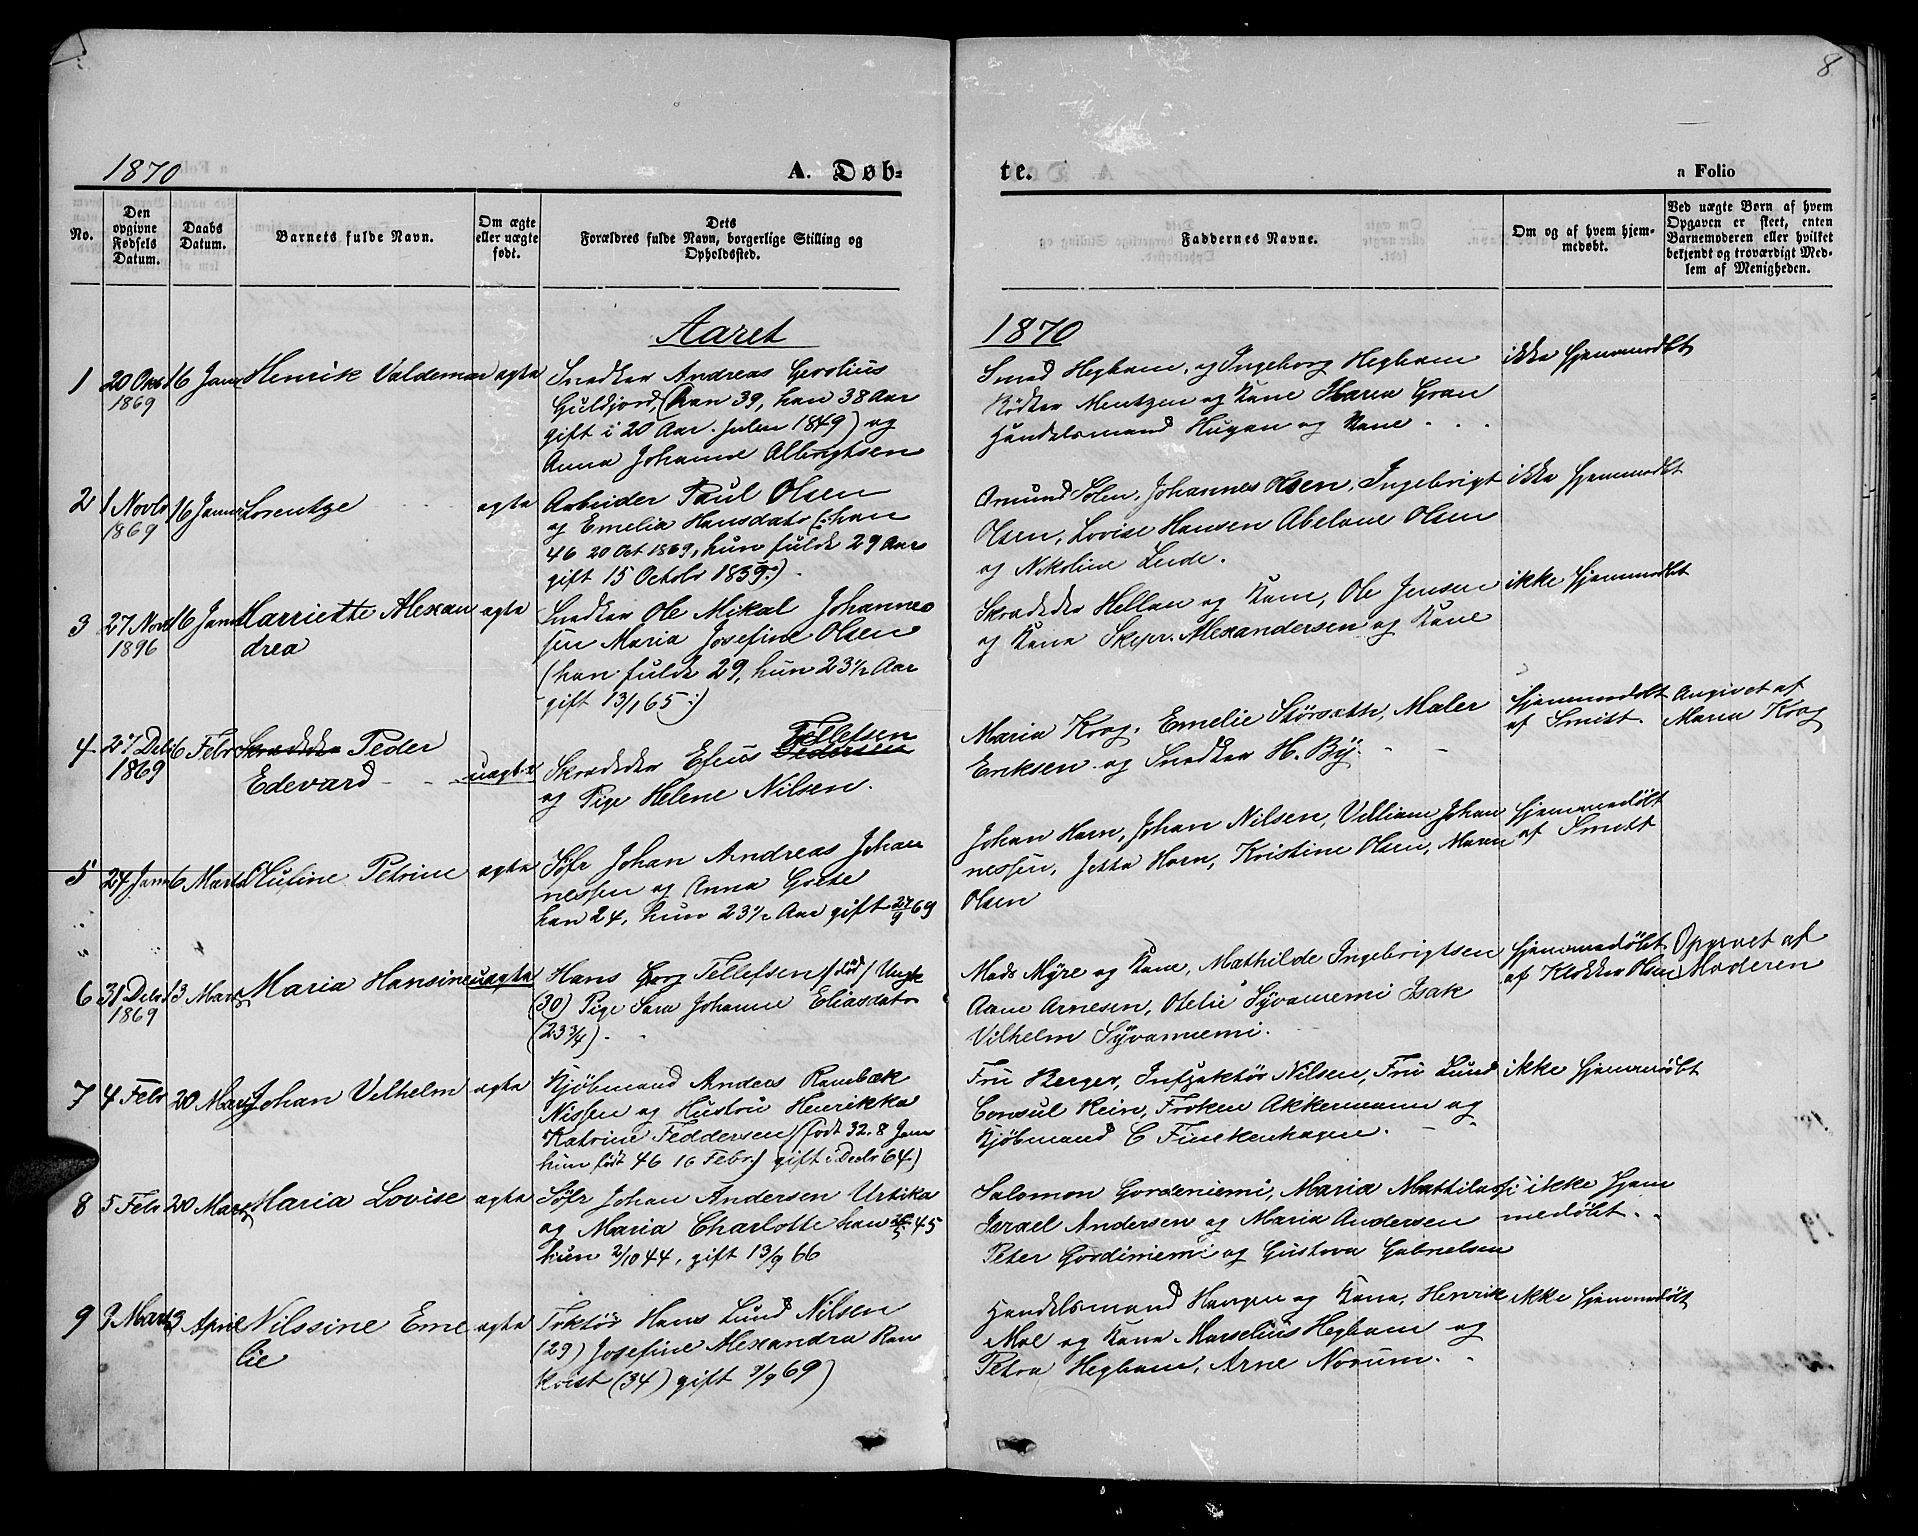 8
1870
A. Døb=
te.
a Folio
No.
Den
opgivne
Fødsels
Datum.
Daabs
Datum.
Barnets fulde Navn.
Om ægte
eller uægte
født.
Dets
Forældres fulde Navn, borgerlige Stilling og
Opholdssted.
Faddernes Navne.
Om og af hvem hjem-
medøbt.
Ved uægte Børn af hvem
Opgaven er skeet, enten
Barnemoderen eller hvilket
bekjendt og troværdigt Med-
lem af Menigheden.
Aaret
1870
1
20 Okt
1869
16 Janr
Henrik Valdemar
ægte
Snedker Andreas Gerolius
Guldfjord, (han 39, hun 38 Aar
gift i 20 Aar. Julen 1849) og
Anna Johanne Albrigtsen
Smed Hegbom, og Ingeborg Hegbom
Bødker Mentzen og Kone Maren Gran
Handelsmand Hugan og Kone . . .
ikke hjemmedøbt
2
1 Novbr
1869
16 Janr
Lorentze
ægte
Arbeider Paul Olsen
og Emelia Hansdatr (: han
46 20 Oct 1869, hun fulde 29 Aar
gift 15 Octobr 1859:)
Amund Solem, Johannes Olsen, Ingebrigt
Olsen, Lovise Hansen Abelone Olsen
og Nikoline Leide.
ikke hjemmedøbt
3
27 Novr
1896
16 Janr
Harriette Alexan
drea
ægte
Snedker Ole Mikal Johannes
sen Maria Josefine Olsen
(han fulde 29, hun 23½ Aar
gift 13/1 65:)
Skrædder Hellan og Kone, Ole Jensen
og Kone Skipr. Alexandersen og Kone
ikke hjemmedøbt
4
27 Debr
1869
6 Febr
Skrædder Peder
Edevard
uægte
Skrædder Efius Pedersen
Tellefsen
og Pige Helene Nilsen.
Maria Krog, Emelie Størseth, Maler
Eriksen og Snedker H. By.
hjemmedøbt
af Smitt.
Angivet af
Maria Krog
5
24 Janr
6 Marts
Olufine Petrine
ægte
Søfr Johan Andreas Johan
nessen og Anna Grete
han 24, hun 23½ Aar gift 27/9 69
Johan Horn, Johan Nilsen, Villiam Johan
nessen, Jetta Horn, Kristine Olsen, Maren
Olsen
hjemmedøbt
af Smitt
6
31 Debr
1869
13 Marts
Maria Hansine
uægte
Hans Georg Tellefsen / død / Ungk
(30) Pige Sara Johanne Eliasdatr
(23¾)
Mads Myre og Kone, Mathilde Ingebrigtsen
Aane Arnesen, Otelie Syvaniemi Isak
Vilhelm Syvaniemi.
hjemmedøbt
af Klokker Olsen
Opgivet af
Moderen
7
4 Febr
20 Marts
Johan Vilhelm
ægte
Kjøbmand Anders Rambæk
Nissen og Hustru Henrikka
Katrine Feddersen (født 32. 8 Janr
hun født 46 16 Febr.) gift i Decbr 64.)
Fru Berger, Infpektør Nilsen, Fru Lund
Consul Rein, Frøken Akkermann og
Kjøbmand C Finckenhagen.
ikke hjemmedøbt
8
5 Febr
20 Marts
Maria Lovise
ægte
Søfr Johan Andersen Urtika
og Maria Charlotte han 45
hun 2/10 44, gift 13/9 66
Salomon Gordeniemi, Maria Mathilassi
Israel Andersen og Maria Andersen
Peter Gordiniemi og Gustova Gabrielsen
ikke hjem
medøbt.
9
9 Marts
3 April
Nilssine Eme
lie
ægte
Toktør Hans Lund Nilsen
(29) Josefine Alexandra Ran
kvist (34) gift 3/9 69)
Handelsmand Haugen og Kone, Henrik
Moe og Kone Marselius Hegbom og
Petra Hegbom, Arne Norum.
ikke hjemmedøbt